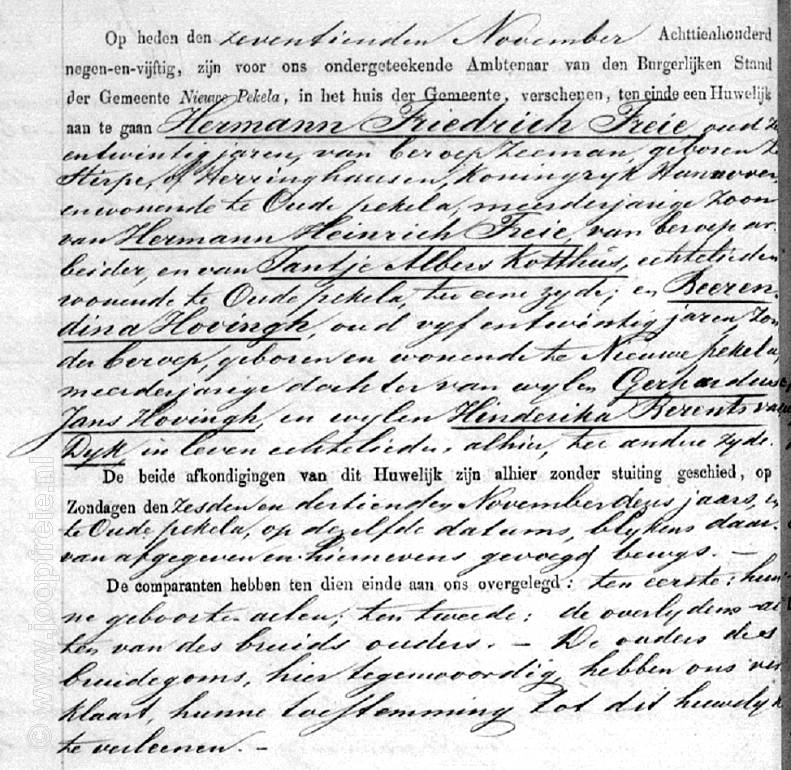 Op heden den zeventienden November Achttienhonderd
negen-en-vijftig, zijn voor ons ondergeteekende Ambtenaar van den Burgerlijken Stand
der Gemeente Nieuwe Pekela, in het huis der Gemeente, verschenen, ten einde een Huwelijk
aan te gaan Hermann Friedrich Freie oud
entwintig jaren, van beroep Zeeman, geboren te
Sterpe, of Herringhausen, Koningryk Hannover,
en wonende te Oude pekela, meerderjarige Zoon
van Hermann Heinrich Freie, van beroep ar-
beider, en van Tantje Albers Kotthüs, echtelieden
wonende te Oude pekela, ter eene zyde; en Beeren-
dina Hovingh oud vyf entwintig jaren, Zon
der beroep, geboren en wonende te Nieuwe pekela,
meerderjarige dochter van wylen Gerhardus
Jans Hovingh, en wylen Hinderika Berents van
Dyk in leven echtelieden, alhier, ter andere zyde.
De beide afkondigingen van dit Huwelijk zijn alhier zonder stuiting geschied, op
Zondagen den Zesden en dertienden November dezes jaars, en
te Oude pekela, op dezelfde datums, blykens daar-
van afgegeven en hiernevens gevoegd bewys. —
De comparanten hebben ten dien einde aan ons overgelegd: ten eerste: hun-
ne geboorte-acten; ten tweede: de overlydens-ac-
ten van des bruids ouders. — De ouders des
bruidegoms, hier tegenwoordig, hebben ons ver
klaart, hunne toestemming tot dit huwelyk
te verleenen. —
© www.joopfreie.nl